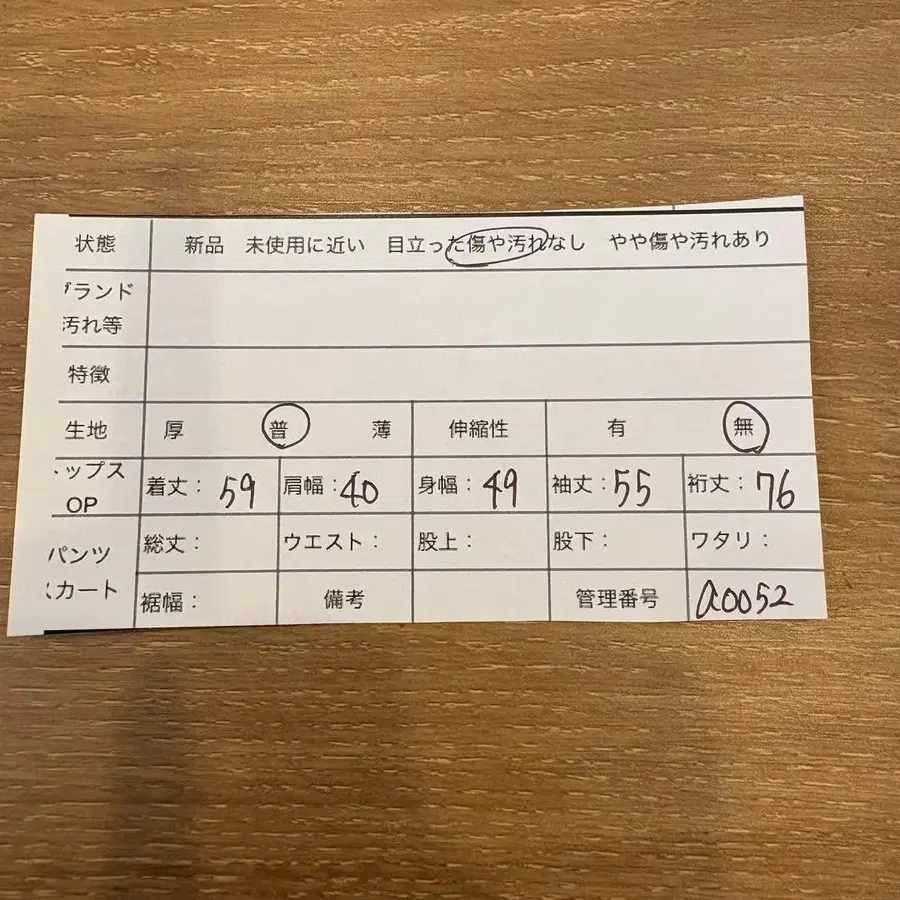 状態 新品 未使用に近い 目立った傷や汚れなし やや傷や汚れあり
ランド
汚れ等
特徴
生地 厚 普 薄 伸縮性 有 無
ップス
OP
着丈: 59 肩幅: 40 身幅: 49 袖丈: 55 裄丈: 76
パンツ
カート
総丈: ウエスト: 股上: 股下: ワタリ:
裾幅: 備考 管理番号 a0052